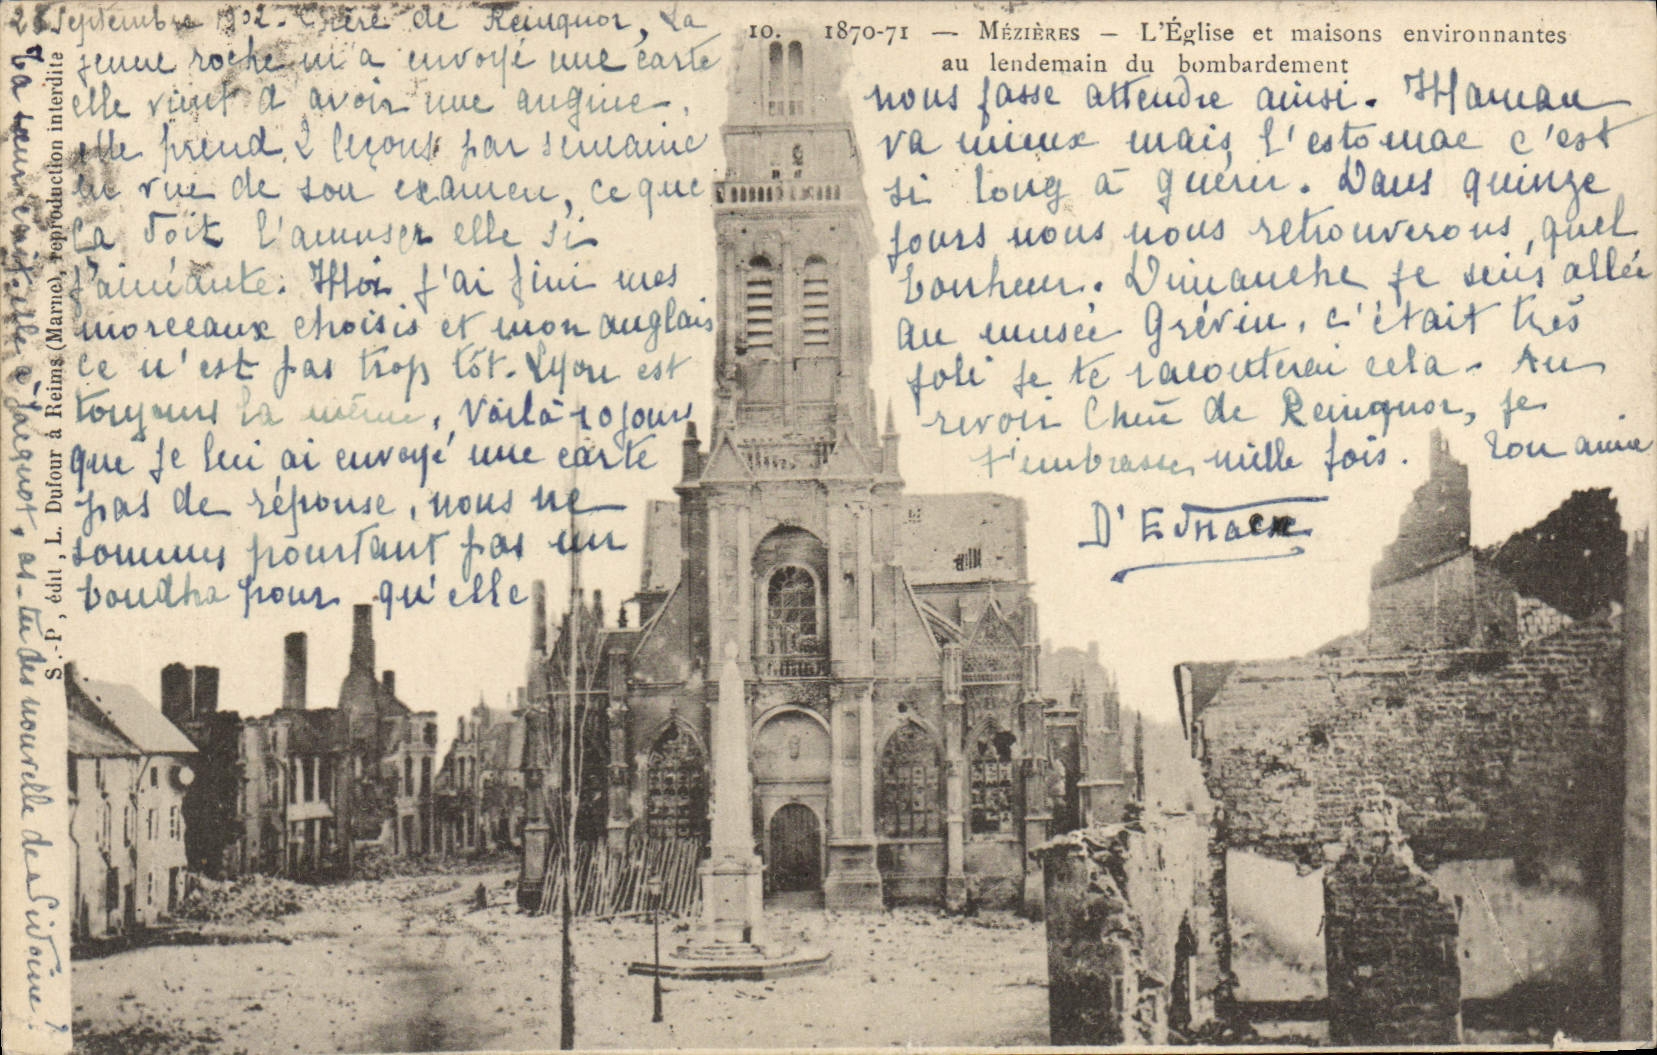 10. 1870-71 — MÉZIÈRES — L'Église et maisons environnantes
au lendemain du bombardement
S.-P, édit, L. Dufour à Reims (Marne), reproduction interdite
Septembre 1902. Chère de Reinquor, la
jeune roche m'a envoyé une carte
elle vient d'avoir une angine,
elle prend 2 leçons par semaine
en vue de son examen, ce que
ça doit l'amuser elle si
j'aimante. Moi j'ai fini mes
morceaux choisis et mon anglais
ce n'est pas trop tôt. Lyon est
toujours la même, voilà 10 jours
que je lui ai envoyé une carte
pas de réponse, nous ne
sommes pourtant pas un
boudha pour qu'elle
nous fasse attendre ainsi. Maman
va mieux mais l'estomac c'est
si long à guérir. Dans quinze
jours nous nous retrouverons, quel
bonheur. Dimanche je suis allée
au musée Grévin, c'était très
joli je te raconterai cela. Au
revoir Chère de Reinquor, je
t'embrasse mille fois. Ton amie
Ta sœur est-elle à Jacquot, as-tu des nouvelle de